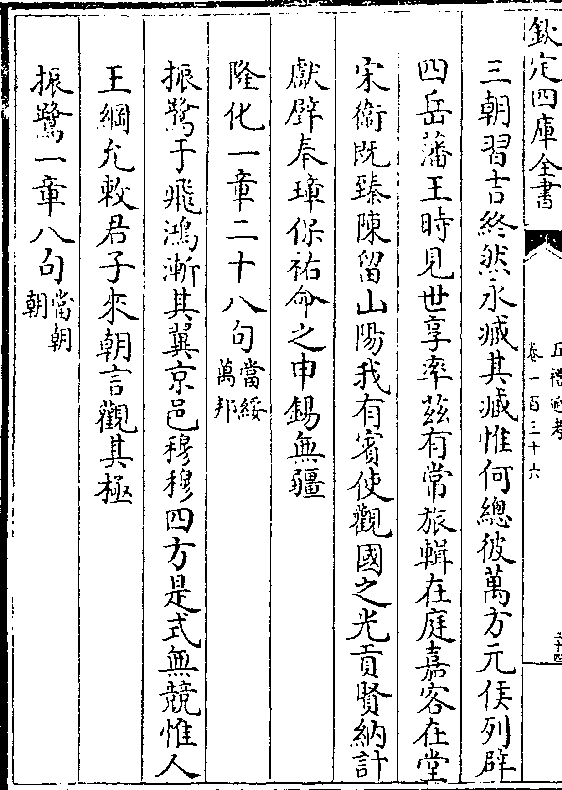 欽定四庫全書
五禮通考
卷一百三十六
三十四
三朝習吉終然永臧其臧惟何總彼萬方元侯列辟
四岳藩王時見世享率茲有常旅輯在庭嘉客在堂
宋衞既臻陳留山陽我有賓使觀國之光貢賢納計
獻璧奉璋保祐命之申錫無疆
隆化一章二十八句當綏萬邦
振鷺于飛鴻漸其翼京邑穆穆四方是式無競惟人
王綱允敕君子來朝言觀其極
振鷺一章八句當朝朝